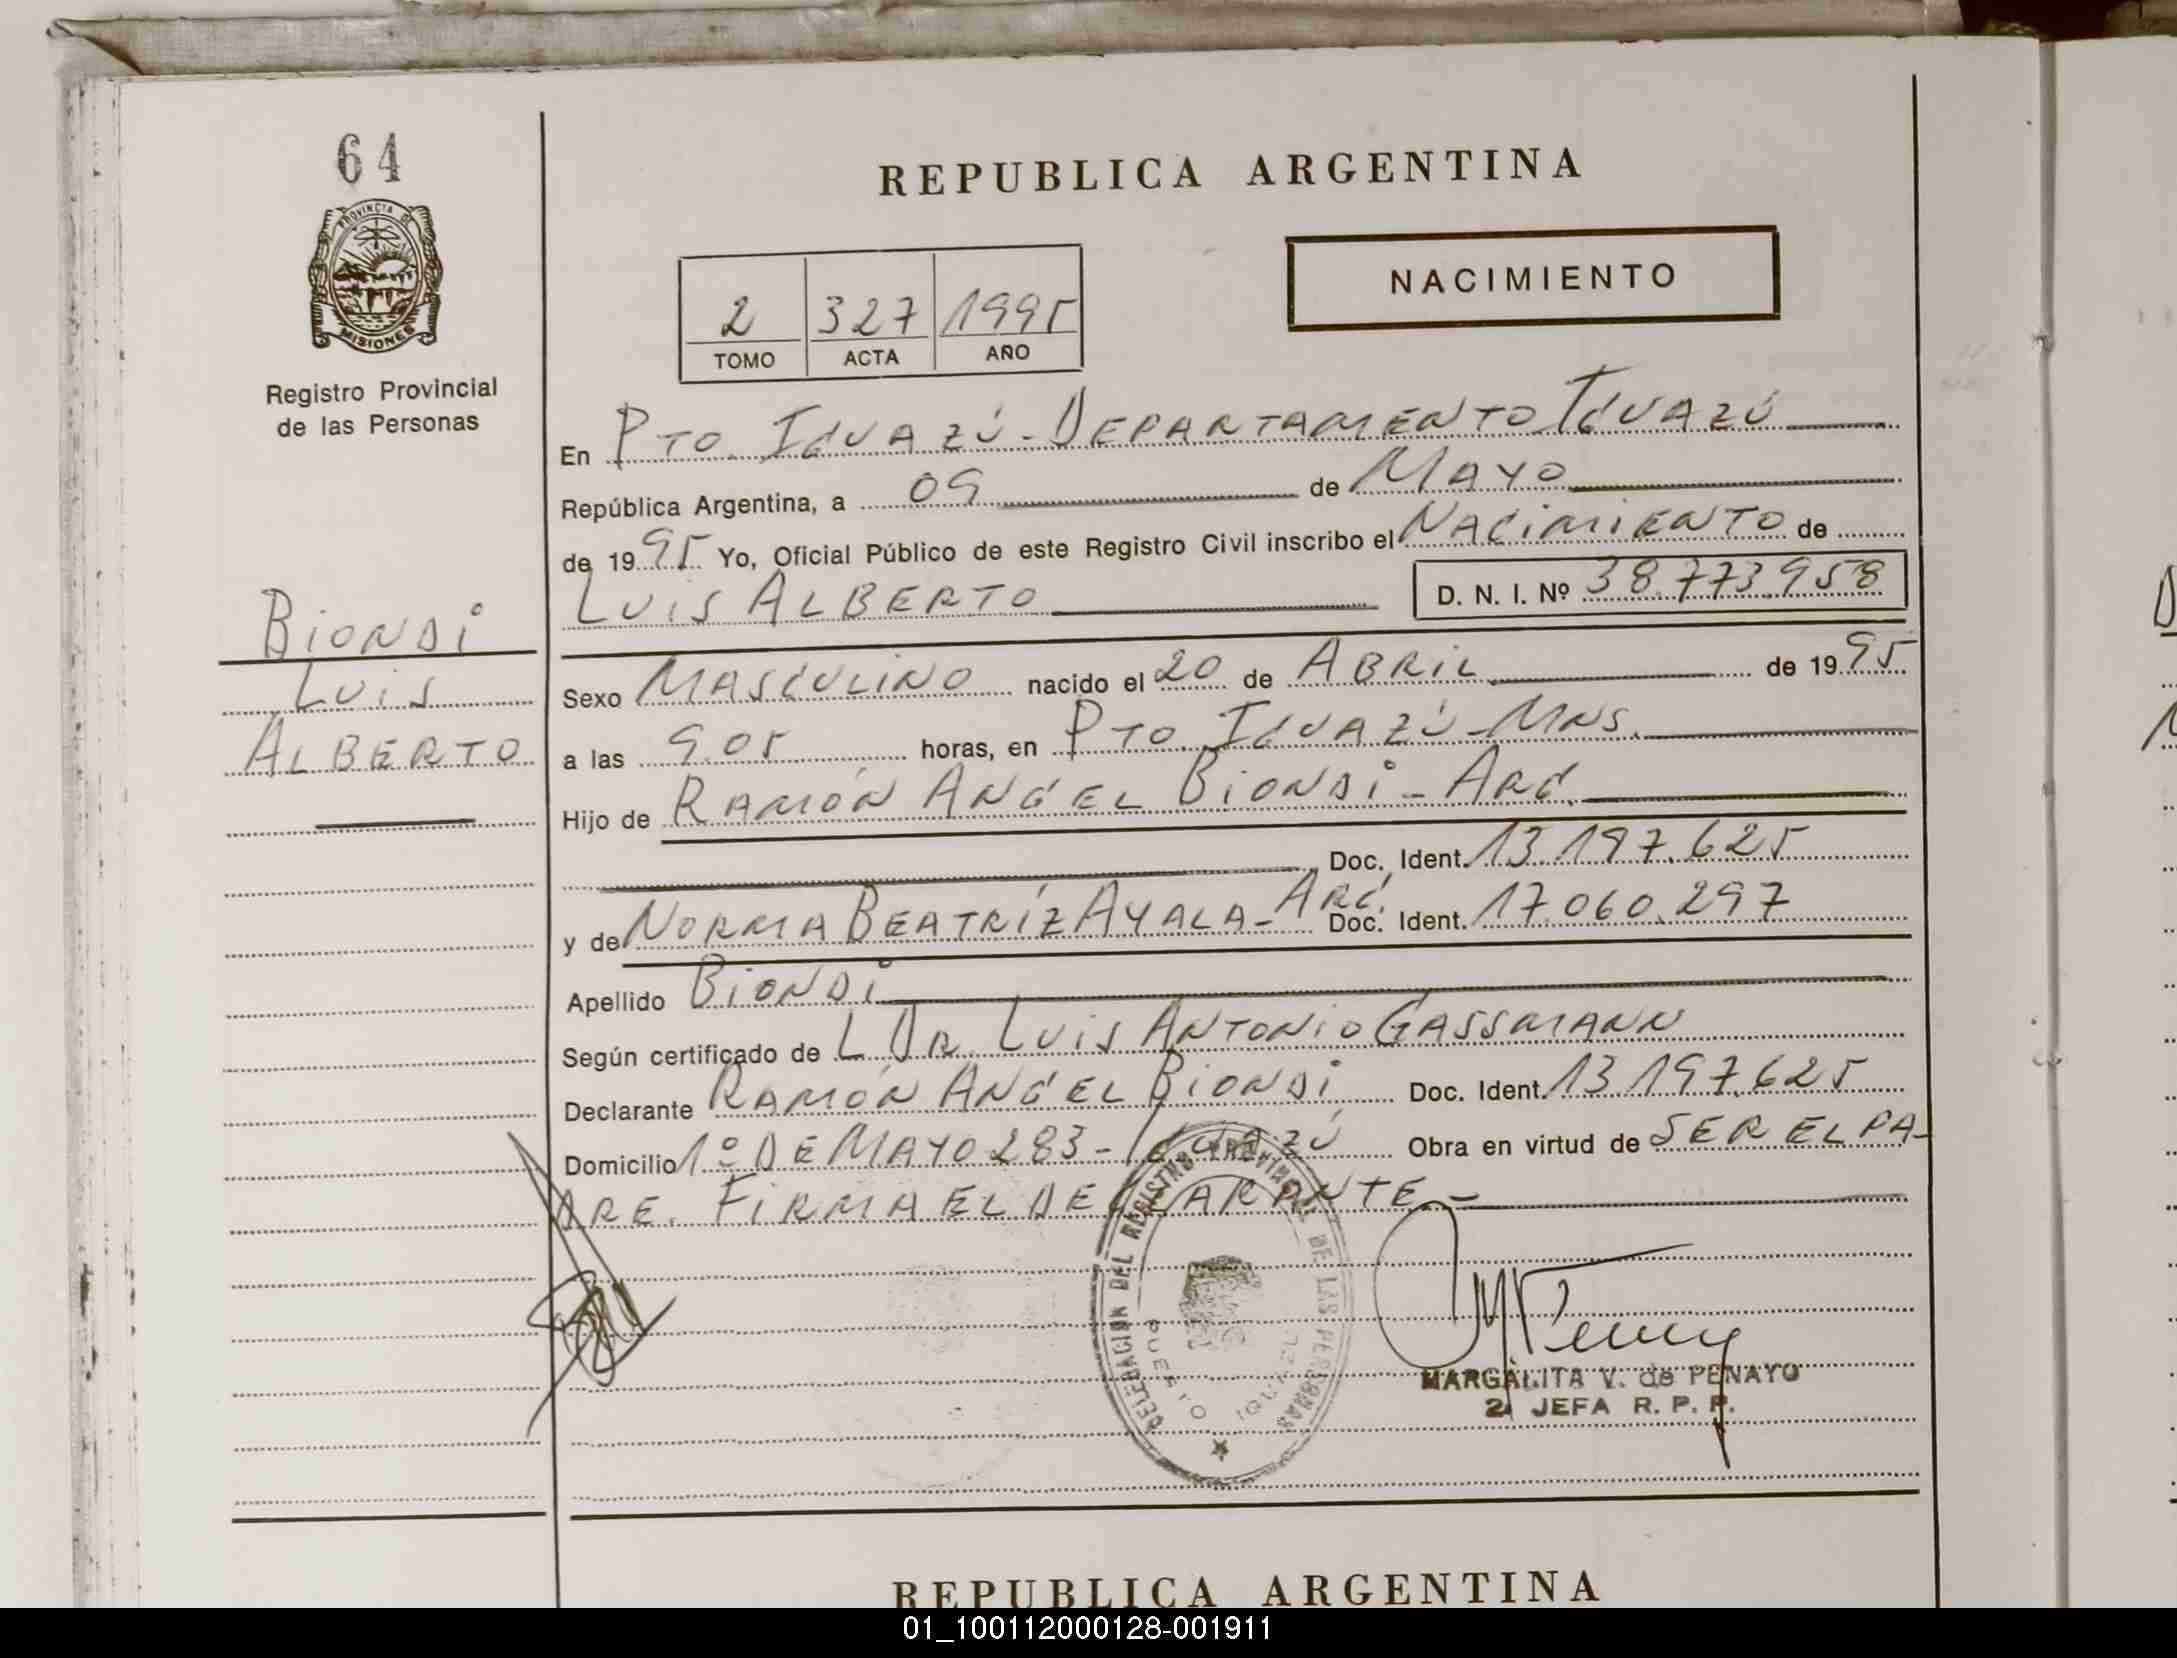 64
REPUBLICA ARGENTINA
PROVINCIA DE
MISIONES
NACIMIENTO
2 327 1995
TOMO ACTA AÑO
Registro Provincial
de las Personas
En PTO. IGUAZÚ - DEPARTAMENTO IGUAZÚ
República Argentina, a 09 de MAYO
de 1995 Yo, Oficial Público de este Registro Civil inscribo el NACIMIENTO de
LUIS ALBERTO D. N. I. Nº 38.773.958
BIONDI
LUIS
ALBERTO
Sexo MASCULINO nacido el 20 de ABRIL de 1995
a las 9.05 horas, en PTO. IGUAZÚ - MNS.
Hijo de RAMÓN ANGEL BIONDI - ARG.
Doc. Ident. 13.197.625
y de NORMA BEATRÍZ AYALA - ARG. Doc. Ident. 17.060.297
Apellido BIONDI
Según certificado de L DR. LUIS ANTONIO GASSMANN
Declarante RAMÓN ANGEL BIONDI Doc. Ident. 13.197.625
Domicilio 1º DE MAYO 283 - IGUAZÚ Obra en virtud de SER EL PA-
DRE. FIRMA EL DECLARANTE. -
DELEGACION DEL REGISTRO PROVINCIAL DE LAS PERSONAS
PUERTO IGUAZU
MARGALITA V. de PENAYO
2 JEFA R. P. P.
REPUBLICA ARGENTINA
01_100112000128-001911